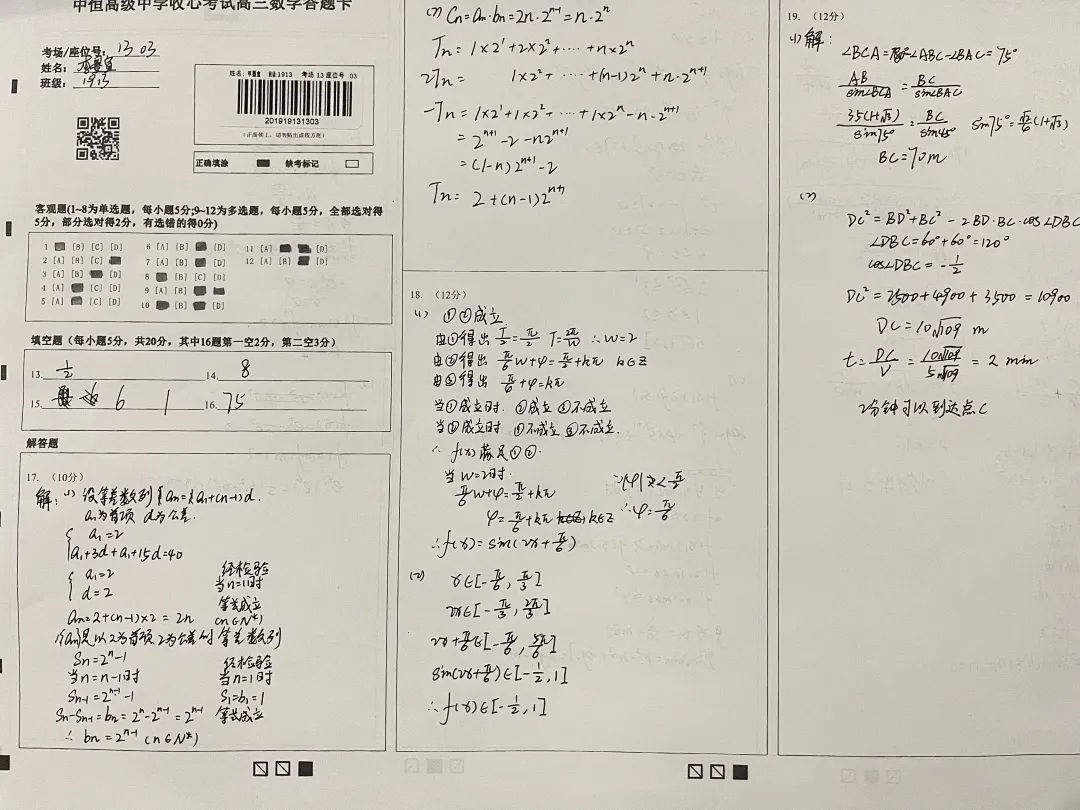 中恒高级中学收心考试高三数学答题卡
考场/座位号: 1303
姓名:
班级: 1913
姓名: 班级:1913 考场 13 座位号 03
201919131303
(正面朝上,切勿贴出虚线方框)
正确填涂 缺考标记
客观题(1~8为单选题,每小题5分;9~12为多选题,每小题5分,全部选对得
5分,部分选对得2分,有选错的得0分)
1 [B] [C] [D]
2 [A] [B] [C]
3 [A] [B] [D]
4 [A] [C] [D]
5 [A] [C] [D]
6 [A] [B] [D]
7 [A] [B] [D]
8 [B] [C] [D]
9 [A] [B]
10 [B] [D]
11 [A] [D]
12 [A] [B] [D]
填空题(每小题5分,共20分,其中16题第一空2分,第二空3分)
13. 1/2 14. 8
15. 6 1 16. 75
解答题
17. (10分)
解: (1) 设等差数列{an=a1+(n-1)d.
a1为首项 d为公差.
{ a1=2
a1+3d+a1+15d=40
{ a1=2
d=2
经检验
当n=1时
等式成立
an=2+(n-1)×2=2n (n∈N*)
{an}是以2为首项2为公差的等差数列
Sn=2^n-1
当n=n-1时
Sn-1=2^(n-1)-1
经检验
当n=1时
S1=b1=1
Sn-Sn-1=bn=2^n-2^(n-1)=2^(n-1) 等式成立
∴ bn=2^(n-1) (n∈N*)
(2) Cn=an·bn=2n·2^(n-1)=n·2^n
Tn=1×2^1+2×2^2+⋯⋯+n×2^n
2Tn= 1×2^2+⋯⋯+(n-1)2^n+n·2^(n+1)
-Tn=1×2^1+1×2^2+⋯+1×2^n-n·2^(n+1)
=2^(n+1)-2-n2^(n+1)
=(1-n)2^(n+1)-2
Tn=2+(n-1)2^(n+1)
18. (12分)
(1) ①②成立
由①得出 T/2=π/2 T=2π/W ∴W=2
由②得出 π/6W+φ=π/2+kπ k∈Z
由③得出 π/6+φ=kπ
当①成立时. ②成立 ③不成立
当③成立时 ①不成立 ②不成立.
∴ f(x)满足①②.
当W=2时.
π/6W+φ=π/2+kπ ∵|φ|<π/2
φ=π/6+kπ k∈Z ∴φ=π/6
∴f(x)=sin(2x+π/6)
(2) x∈[-π/6, π/3]
2x∈[-π/3, 2π/3]
2x+π/6∈[-π/6, 5π/6]
sin(2x+π/6)∈[-1/2,1]
∴f(x)∈[-1/2,1]
19. (12分)
(1) 解:
∠BCA=180°-∠ABC-∠BAC=75°
AB/sin∠BCA=BC/sin∠BAC
35(1+√3)/sin75°=BC/sin45° sin75°=√2/4(1+√3)
BC=70m
(2)
DC²=BD²+BC²-2BD·BC·cos∠DBC
∠DBC=60°+60°=120°
cos∠DBC=-1/2
DC²=2500+4900+3500=10900
DC=10√109 m
t=DC/V=10√109/5√109=2 min
2分钟可以到达点C